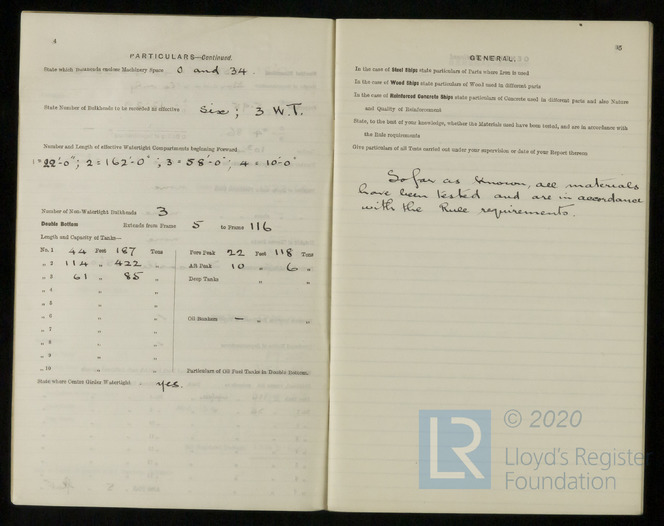 4
PARTICULARS—Continued.
State which bulkheads enclose Machinery Space 0 and 34.
State Number of Bulkheads to be recorded as effective Six; 3 W.T.
Number and Length of effective Watertight Compartments beginning Forward
1=22'-0"; 2=162'-0"; 3=58'-0"; 4=10'-0"
Number of Non-Watertight Bulkheads 3
Double Bottom Extends from Frame 5 to Frame 116
Length and Capacity of Tanks—
No. 1 44 Feet 187 Tons Fore Peak 22 Feet 118 Tons
„ 2 114 „ 422 „ Aft Peak 10 „ 6 „
„ 3 61 „ 85 „ Deep Tanks „ „
„ 4 „ „
„ 5 „ „
„ 6 „ „ Oil Bunkers — „ „
„ 7 „ „
„ 8 „ „
„ 9 „ „
„ 10 „ „ Particulars of Oil Fuel Tanks in Double Bottom.
State where Centre Girder Watertight yes.
GENERAL.
In the case of Steel Ships state particulars of Parts where Iron is used
In the case of Wood Ships state particulars of Wood used in different parts
In the case of Reinforced Concrete Ships state particulars of Concrete used in different parts and also Nature
and Quality of Reinforcement
State, to the best of your knowledge, whether the Materials used have been tested, and are in accordance with
the Rule requirements
Give particulars of all Tests carried out under your supervision or date of your Report thereon
So far as known, all materials
have been tested and are in accordance
with the Rule requirements.
LR
© 2020
Lloyd's Register
Foundation